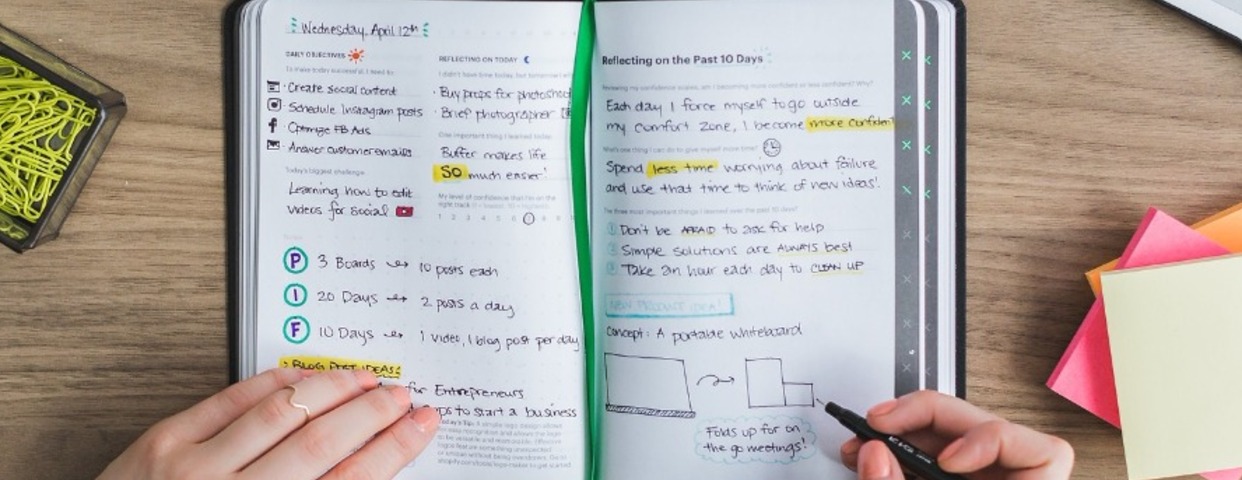 Wednesday, April 12th
DAILY OBJECTIVES
To make today successful, I need to:
· Create social content
· Schedule Instagram posts
· Optimize FB Ads
· Answer customer emails
Today's biggest challenge
Learning how to edit
videos for social
P 3 Boards → 10 posts each
I 20 Days → 2 posts a day
F 10 Days → 1 video, 1 blog post per day
BLOG POST IDEAS:
for Entrepreneurs
to start a business
REFLECTING ON TODAY
I didn't have time today, but tomorrow I will
· Buy props for photoshoot
· Brief photographer
One important thing I learned today
Buffer makes life
SO much easier!
My level of confidence that I'm on the
right track
1 2 3 4 5 6 7 8
Reflecting on the Past 10 Days
Reviewing my confidence scales, am I becoming more confident or less confident? Why?
Each day I force myself to go outside
my comfort zone, I become more confident
What's one thing I can do to give myself more time?
Spend less time worrying about failure
and use that time to think of new ideas!
The three most important things I learned over the past 10 days?
1 Don't be AFRAID to ask for help
2 Simple solutions are ALWAYS best
3 Take an hour each day to CLEAN UP
NEW PRODUCT IDEA!
Concept: A portable whiteboard
Folds up for on
the go meetings!